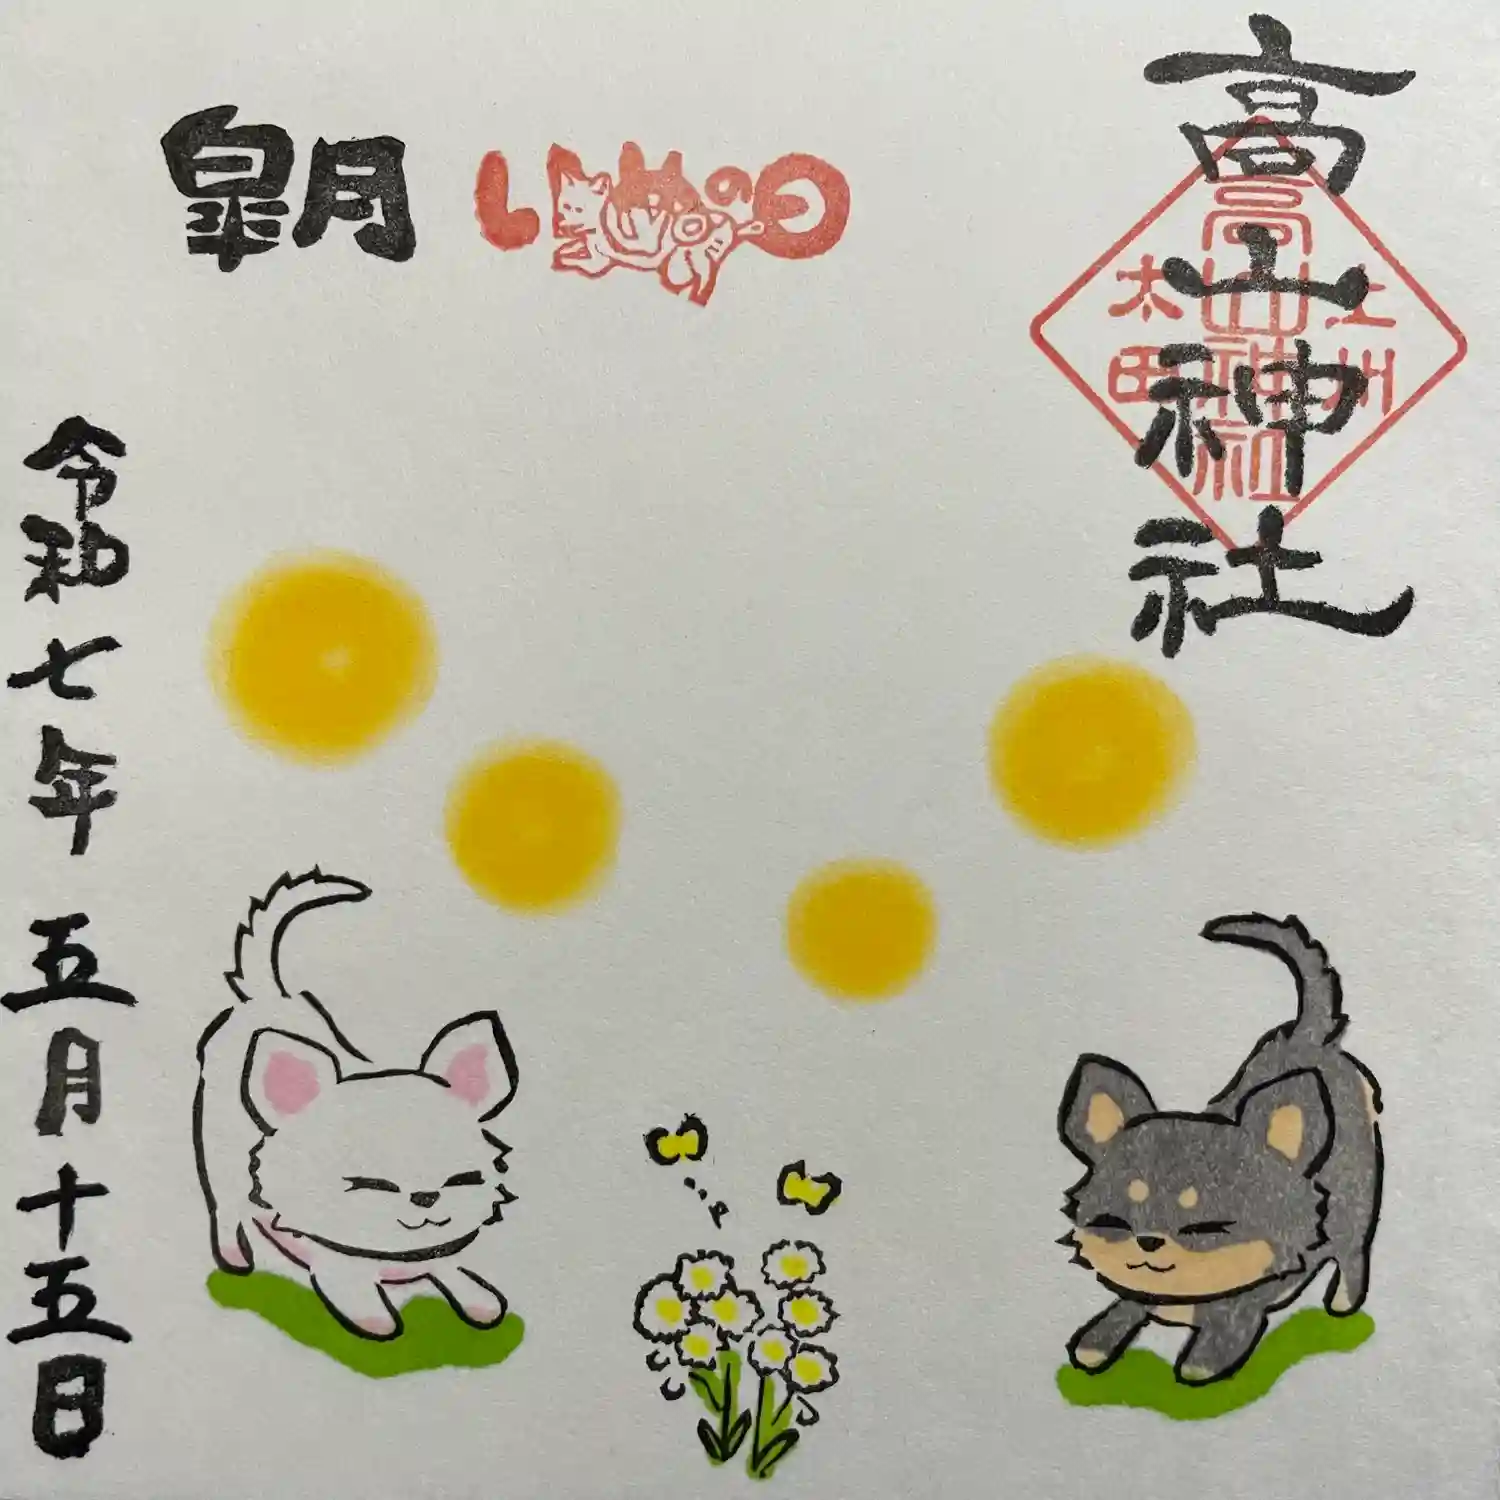 高山神社
上州
高山神社
太田
皐月
の日
令和七年 五月十五日